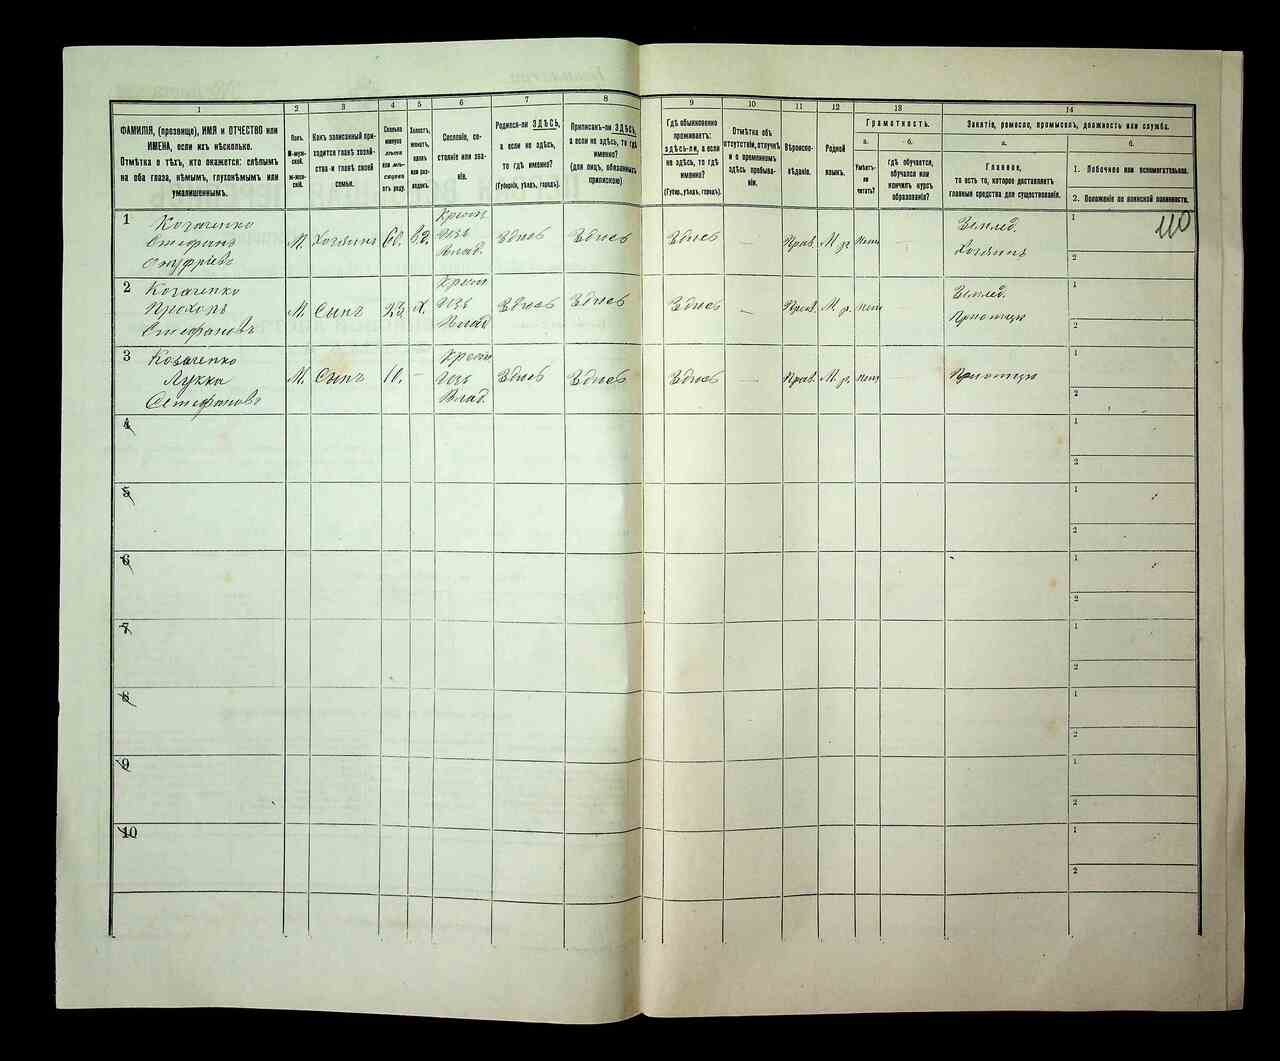 1
2
3
4
5
6
7
8
9
10
11
12
13
14
ФАМИЛІЯ, (прозвище), ИМЯ и ОТЧЕСТВО или
ИМЕНА, если ихъ нѣсколько.
Отмѣтка о тѣхъ, кто окажется: слѣпымъ
на оба глаза, нѣмымъ, глухонѣмымъ или
умалишеннымъ.
Полъ.
М-муж-
ской.
ж-жен-
скій.
Какъ записанный при-
ходится главѣ хозяй-
ства и главѣ своей
семьи.
Сколько
минуло
лѣтъ
или мѣ-
сяцевъ
отъ роду.
Холостъ,
женатъ,
вдовъ
или раз-
веденъ.
Сословіе, со-
стояніе или зва-
ніе.
Родился-ли ЗДѢСЬ,
а если не здѣсь,
то гдѣ именно?
(Губернія, уѣздъ, городъ).
Приписанъ-ли ЗДѢСЬ,
а если не здѣсь, то гдѣ
именно?
(для лицъ, обязанныхъ
припискою)
Гдѣ обыкновенно
проживаетъ:
здѣсь-ли, а если
не здѣсь, то гдѣ
именно?
(Губер., уѣздъ, городъ).
Отмѣтка объ
отсутствіи, отлучкѣ
и о временномъ
здѣсь пребыва-
ніи.
Вѣроиспо-
вѣданіе.
Родной
языкъ.
Грамотность.
а.
б.
Умѣетъ-
ли
читать?
гдѣ обучается,
обучался или
кончилъ курсъ
образованія?
Занятіе, ремесло, промыселъ, должность или служба.
а.
б.
Главное,
то есть то, которое доставляетъ
главныя средства для существованія.
1. Побочное или вспомогательное.
2. Положеніе по воинской повинности.
110
1
Козаченко
Стефанъ
Онуфріевъ
М.
Хозяинъ
60.
вд.
Крест.
изъ
Влад.
Здѣсь
Здѣсь
Здѣсь
—
Прав.
М. р.
нет
—
Землед.
Хозяинъ
1
2
2
Козаченко
Прохоръ
Стефановъ
М.
Сынъ
х.
Крест.
изъ
Влад.
Здѣсь
Здѣсь
Здѣсь
—
Прав.
М. р.
нет
Землед.
1
2
3
Козаченко
Лукка
Стефановъ
М.
Сынъ
10.
—
Крест.
изъ
Влад.
Здѣсь
Здѣсь
Здѣсь
—
Прав.
М. р.
нет
1
2
4
1
2
5
1
2
6
1
2
7
1
2
8
1
2
9
1
2
10
1
2